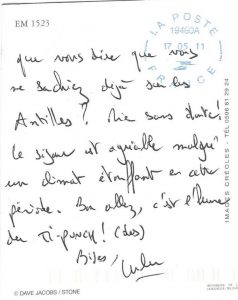 EM 1523
LA POSTE
19460A
17 05 11
FRANCE
que vous dire que vous
ne sachiez déjà sur les
Antilles? Rien sans doute!
le séjour est agréable malgré
un climat étouffant en cette
période. Bon allez, c'est l'heure
du Ti-punch! (des)
Bises,
© DAVE JACOBS / STONE
IMAGES CRÉOLES - TÉL 0596 61 29 70